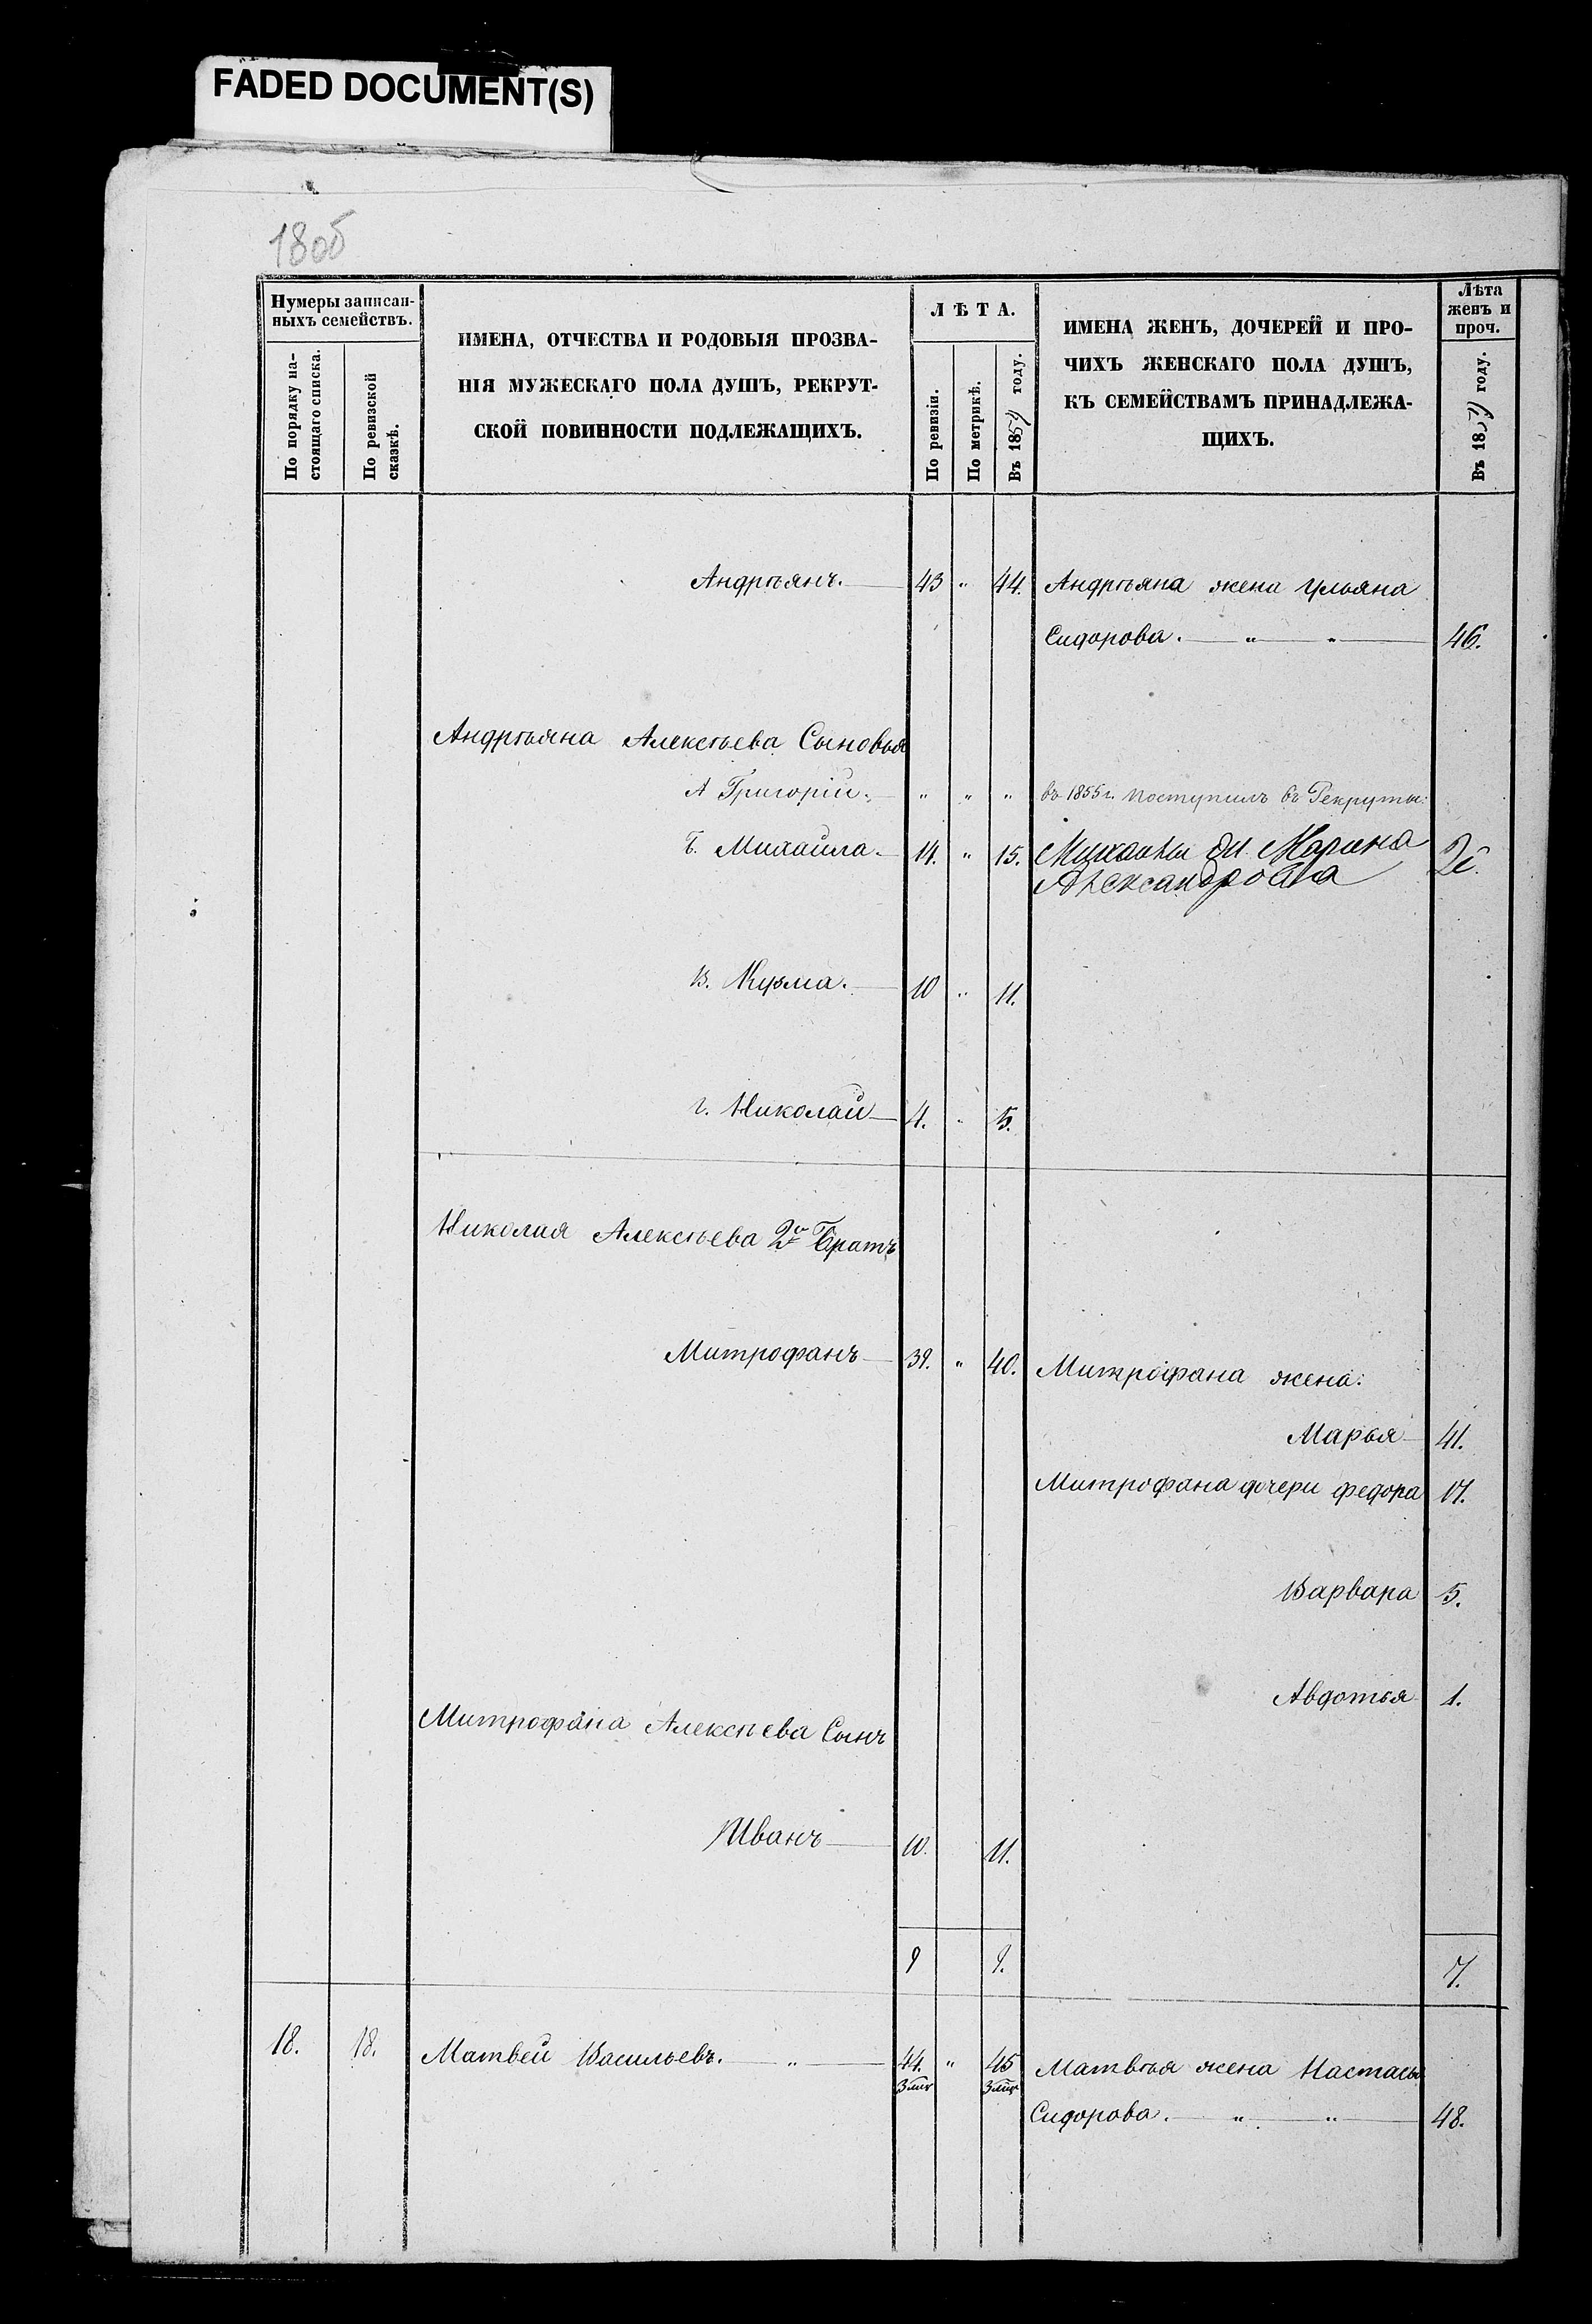 FADED DOCUMENT(S)
1806
Нумеры записан-
ныхъ семействъ.
По порядку на-
стоящаго списка.
По ревизской
сказкѣ.
ИМЕНА, ОТЧЕСТВА И РОДОВЫЯ ПРОЗВА-
НІЯ МУЖЕСКАГО ПОЛА ДУШЪ, РЕКРУТ-
СКОЙ ПОВИННОСТИ ПОДЛЕЖАЩИХЪ.
ЛѢТА.
По ревизіи.
По метрикѣ.
Въ 1859 году.
ИМЕНА ЖЕНЪ, ДОЧЕРЕЙ И ПРО-
ЧИХЪ ЖЕНСКАГО ПОЛА ДУШЪ,
КЪ СЕМЕЙСТВАМЪ ПРИНАДЛЕЖА-
ЩИХЪ.
Лѣта
женъ и
проч.
Въ 1859 году.
Андрѣянъ. 43 " 44. Андрѣяна жена Ульяна
Сидорова. " " 46.
Андрѣяна Алексѣева Сыновья
А Григорій. " " " въ 1855 г. поступилъ въ Рекруты.
Б. Михайла. 14. " 15. Михайлы Марина
Александрова
В. Кузма. 10 " 11.
г. Николай 4. " 5.
Николая Алексѣева 2й Братъ
Митрофанъ 39. " 40. Митрофана жена:
Марья 41.
Митрофана дочери федора 17.
Варвара 5.
Авдотья 1.
Митрофана Алексѣева Сынъ
Иванъ 10. 11.
9 9. 7.
18. 18. Матвей Васильевъ. " 44. " 45 Матвѣя жена Настасья
Сидорова. " " 48.